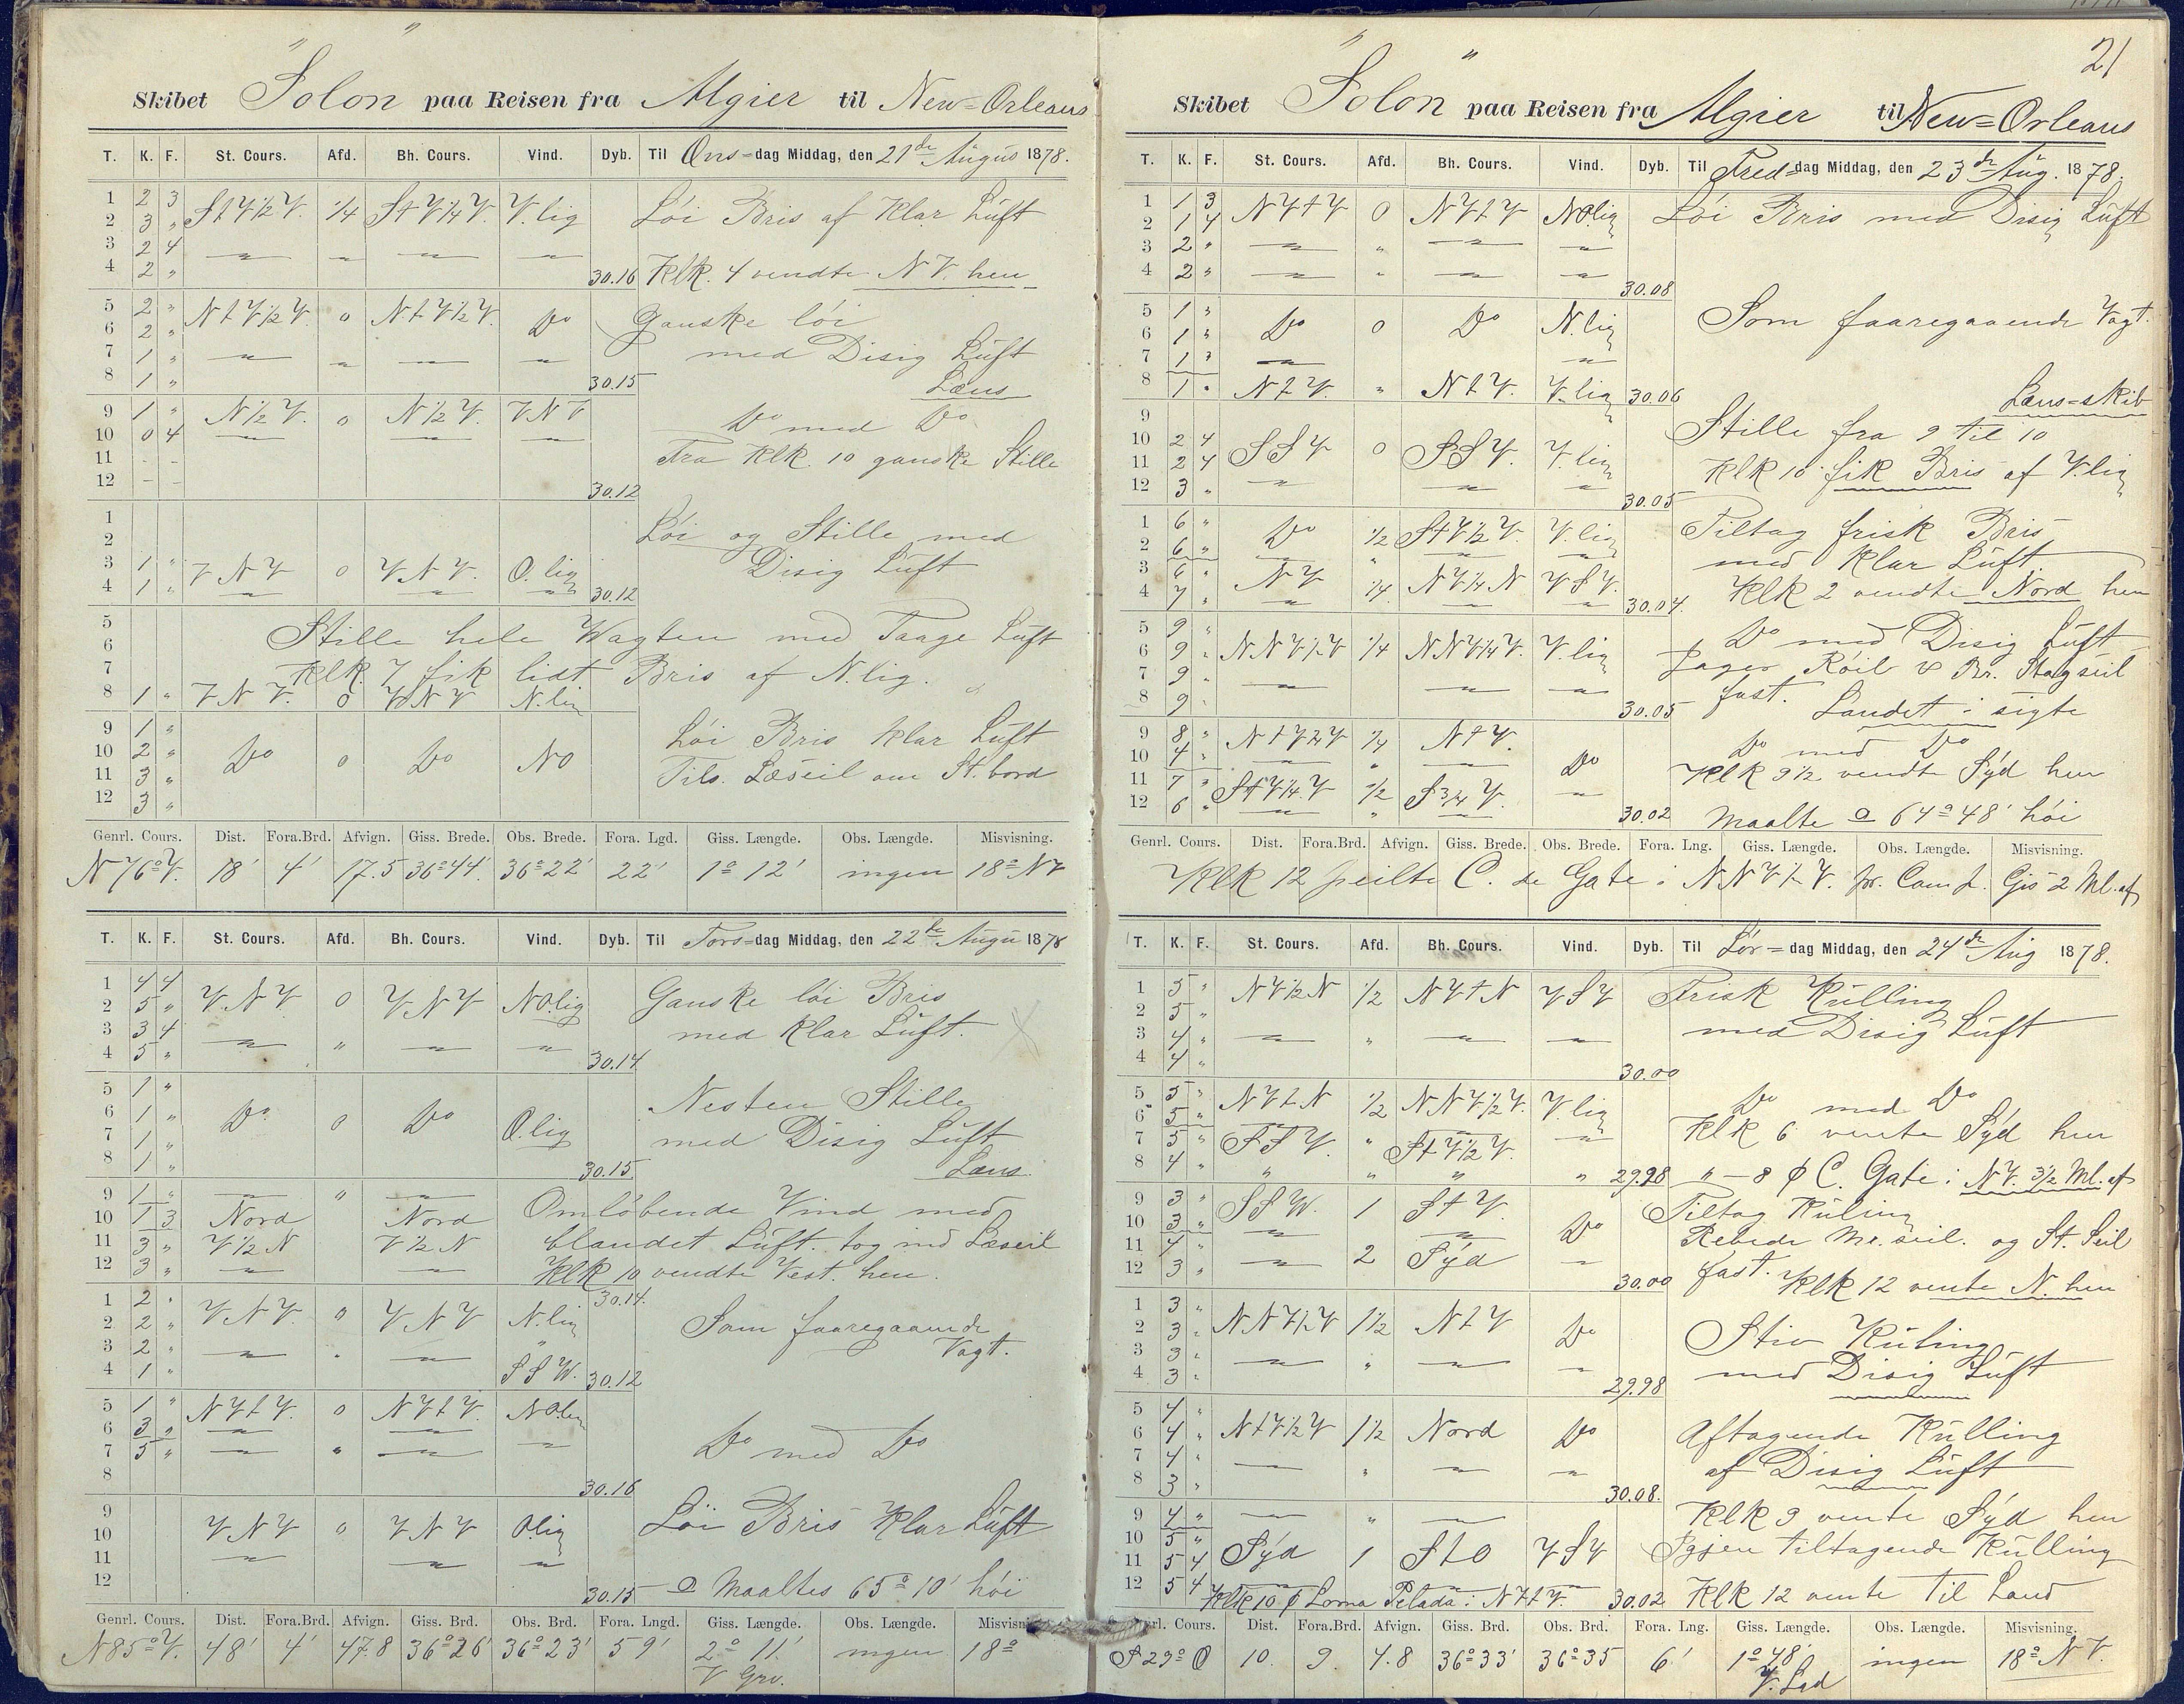 Skibet "Solon" paa Reisen fra Algier til New-Orleans
T. K. F. St. Cours. Afd. Bh. Cours. Vind. Dyb. Til Ons-dag Middag, den 21de Augus 1878.
1 2 3 StV½V. ¼ StV¼V. V.lig Löi Bris af Klar Lüft
2 3 "
3 2 4 — — — —
4 2 " 30.16 Klk. 4 vendte NV. hen
5 2 " NtV½V 0 NtV½V. Do Ganske löi
6 2 "
7 1 " — — — — med Disig Lüft
8 1 " 30.15 Læns
9 1 " N½V. 0 N½V. VNV Do med Do
10 0 4 — — —
11 - - Fra Klk. 10 ganske Stille
12 - - 30.12
1 Löi og Stille med
2
3 1 " VNV 0 VNV. O.lig Disig Lüft
4 1 " — — — 30.12
5
6 Stille hele Wagten med Taage Lüft
7 Klk. 7 fik lidt Bris af N.lig.
8 1 " VNV. 0 VNV N.lig
9 1 " Löi Bris Klar Lüft
10 2 " Do 0 Do NO
11 3 " Tils. Læseil om St.bord
12 3 "
Genrl. Cours. Dist. Fora.Brd. Afvign. Giss. Brede. Obs. Brede. Fora. Lgd. Giss. Længde. Obs. Længde. Misvisning.
N76°V. 18' 4' 17.5 36°44' 36°22' 22' 1° 12' ingen 18° NV
T. K. F. St. Cours. Afd. Bh. Cours. Vind. Dyb. Til Tors-dag Middag, den 22de Augu 1878
1 4 4 VNV 0 VNV NO.lig Ganske löi Bris
2 5 "
3 3 4 — " — — med Klar Lüft.
4 5 " 30.14
5 1 " Nesten Stille
6 1 " Do 0 Do O.lig
7 1 " med Disig Lüft
8 1 " 30.15 Læns
9 1 " — " — Omlöbende Vind med
10 1 3 Nord Nord
11 3 " V½N V½N blandet Lüft. tog ind Læseil
12 3 " — — Klk 10 vendte Vest. hen.
30.14.
1 2 " VNV. " VNV N.lig
2 2 " Som faaregaaende
3 2 " — " — " Vagt.
4 1 " SSW. 30.12
5 1 " NVtV. 0 NVtV. NO.lig
6 3 " — —
7 5 " — " — — Do med Do
8 30.16
9 Löi Bris Klar Lüft
10 VNV 0 VNV O.lig
11 — — —
12 30.15 Maaltes 65° 10' höi
Genrl. Cours. Dist. Fora.Brd. Afvign. Giss. Brd. Obs. Brd. Fora. Lngd. Giss. Længde. Obs. Længde. Misvisning.
N85°V. 48' 4' 47.8 36°26' 36°23' 59' 2° 11' ingen 18°
V Grv.
21
Skibet "Solon" paa Reisen fra Algier til New-Orleans
T. K. F. St. Cours. Afd. Bh. Cours. Vind. Dyb. Til Fred-dag Middag, den 23de Aug. 1878.
1 1 3 NVtV 0 NVtV NO.lig Löi Bris med Disig Lüft
2 1 4
3 2 " — " — —
4 2 " — " — — 30.08
5 1 " Som faaregaaende Vagt.
6 1 " Do 0 Do N.lig
7 1 " — —
8 1 " NtV. " NtV. V.lig 30.06 Læns-skib
9 Stille fra 9 til 10
10 2 4 SSV 0 SSV. V.lig
11 2 4 Klk 10 fik Bris af V.lig
12 3 " — — — 30.05
1 6 " Do ½ StV½V. V.lig Tiltag frisk Bris
2 6 " — " — — med Klar Lüft
3 6 " NV ¼ NV¼N VSV.
4 7 " — — — 30.04. Klk 2 vendte Nord hen
5 9 " Do med Disig Lüft
6 9 " NNV½V ¼ NNV¼V. V.lig Röil & Br. Stagseil
7 9 " — — —
8 9 " 30.05 fast. Landet i sigte
9 8 " NtV¾V ¼ NtV. Do Do med Do
10 4 " — " —
11 7 " StV¼V ½ S¾V. — Klk 9½ vendte Syd hen
12 6 " — " — 30.02 Maalte 64°48' höi
Genrl. Cours. Dist. Fora.Brd. Afvign. Giss. Brede. Obs. Brede. Fora. Lng. Giss. Længde. Obs. Længde. Misvisning.
Klk 12 peilte C. de Gate i NNV½V. pr. Comp. Gis 2 Ml. af
T. K. F. St. Cours. Afd. Bh. Cours. Vind. Dyb. Til Lör-dag Middag, den 24de Aug 1878.
1 5 " NV½N ½ NVtN VSV Frisk Külling
2 5 "
3 4 " — " — — med Disig Lüft
4 4 " 30.00
5 5 " NVtN ½ NNV½V. V.lig Do med Do
6 5 " — — Klk 6 vente Syd hen
7 5 " SSV. " StV½V. —
8 4 " " " " " 29.98 " — 8 C. Gate i NV. 3½ Ml. af
9 3 " SSW. 1 StV. Do Tiltag Küling
10 3 " — —
11 4 " — 2 Syd — Rebede Me.seil. og St. Seil
12 3 " 30.00 fast. Klk 12 vente N. hen
1 3 " NNV½V 1½ NtV Do
2 3 " Stiv Küling
3 3 " — " — —
4 3 " 29.98 med Disig Lüft
5 4 "
6 4 " NtV½V 1½ Nord Do Aftagende Külling
7 4 " — " — — af Disig Lüft
8 3 " 30.08.
9 4 " — " — Klk 9 vente Syd hen
10 5 "
11 5 4 Syd 1 StO VSV Igjen tiltagende Külling
12 5 4 Klk 10 Loma Pelada i NVtV. 30.02 Klk 12 vente til Land
Genrl. Cours. Dist. Fora.Brd. Afvign. Giss. Brd. Obs. Brd. Fora. Lng. Giss. Længde. Obs. Længde. Misvisning.
S29°O 10. 9. 4.8 36°33' 36°35 6' 1°48' ingen 18° NV.
V. Lgd